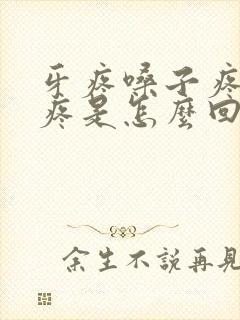 牙疼嗓子疼
疼是怎麼回
余生不說再見